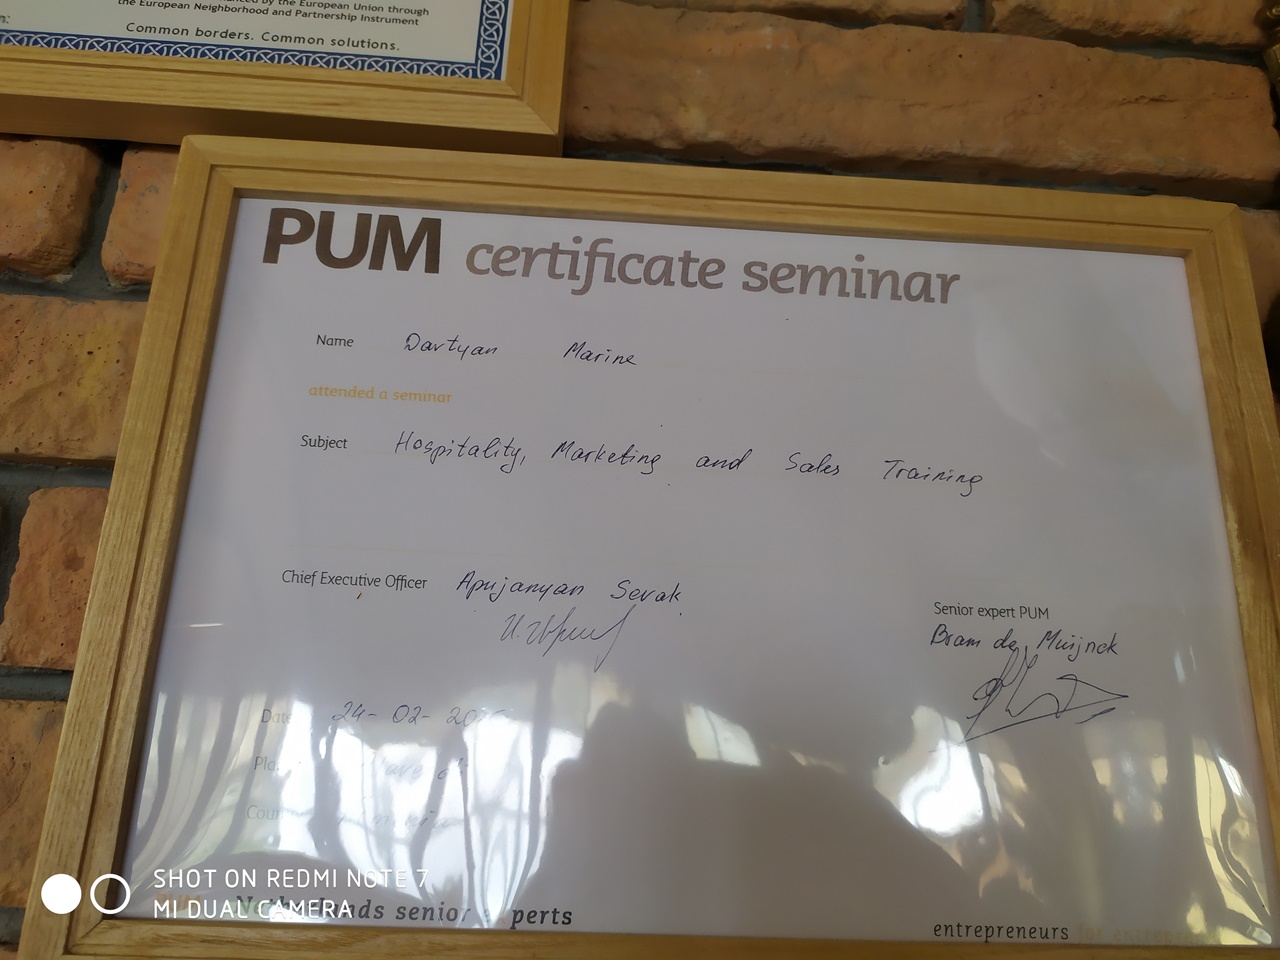 by the European Union through
the European Neighborhood and Partnership Instrument
Common borders. Common solutions.
PUM certificate seminar
Name Davtyan Marine
attended a seminar
Subject Hospitality, Marketing and Sales Training
Chief Executive Officer Apujanyan Sevak
Senior expert PUM
Bram de Muijnck
Date 24-02-
Netherlands senior experts
entrepreneurs for
SHOT ON REDMI NOTE 7
MI DUAL CAMERA